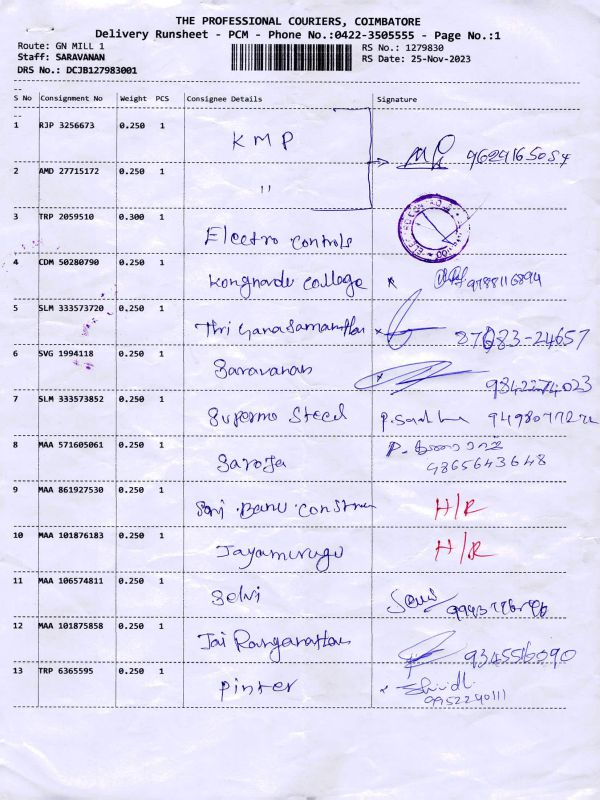 THE PROFESSIONAL COURIERS, COIMBATORE
Delivery Runsheet - PCM - Phone No.:0422-3505555 - Page No.:1
Route: GN MILL 1 RS No.: 1279830
Staff: SARAVANAN RS Date: 25-Nov-2023
DRS No.: DCJB127983001
S No Consignment No Weight PCS Consignee Details Signature
1 RJP 3256673 0.250 1 KMP 9629165054
2 AMD 27715172 0.250 1 "
3 TRP 2059510 0.300 1 Electro controls
4 CDM 50280790 0.250 1 Kongnadu college 9788116894
5 SLM 333573720 0.250 1 87083-24657
6 SVG 1994118 0.250 1 Saravanan 9842274023
7 SLM 333573852 0.250 1 Supermo Steel
8 MAA 571605061 0.250 1 Saroja
4865643648
9 MAA 861927530 0.250 1 Banu H/R
10 MAA 101876183 0.250 1 Jayamurugu H/R
11 MAA 106574811 0.250 1 Selvi
12 MAA 101875858 0.250 1 Jai Ranganathan 9345516090
13 TRP 6365595 0.250 1 Pinter
9952240111